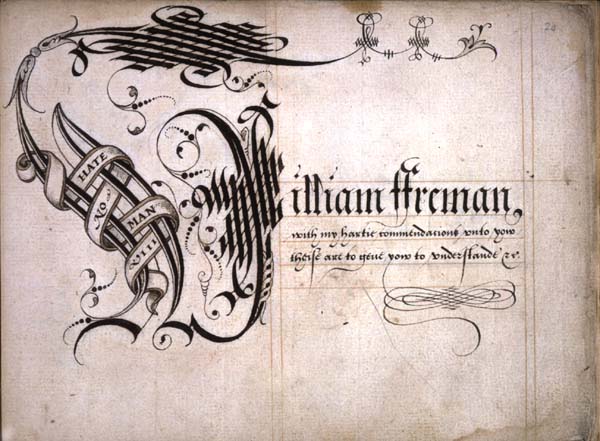 24
HATE
NO
MAN
William ffreman,
with my hartie commendacions vnto yow
theise are to geue yow to vnderstande &c.